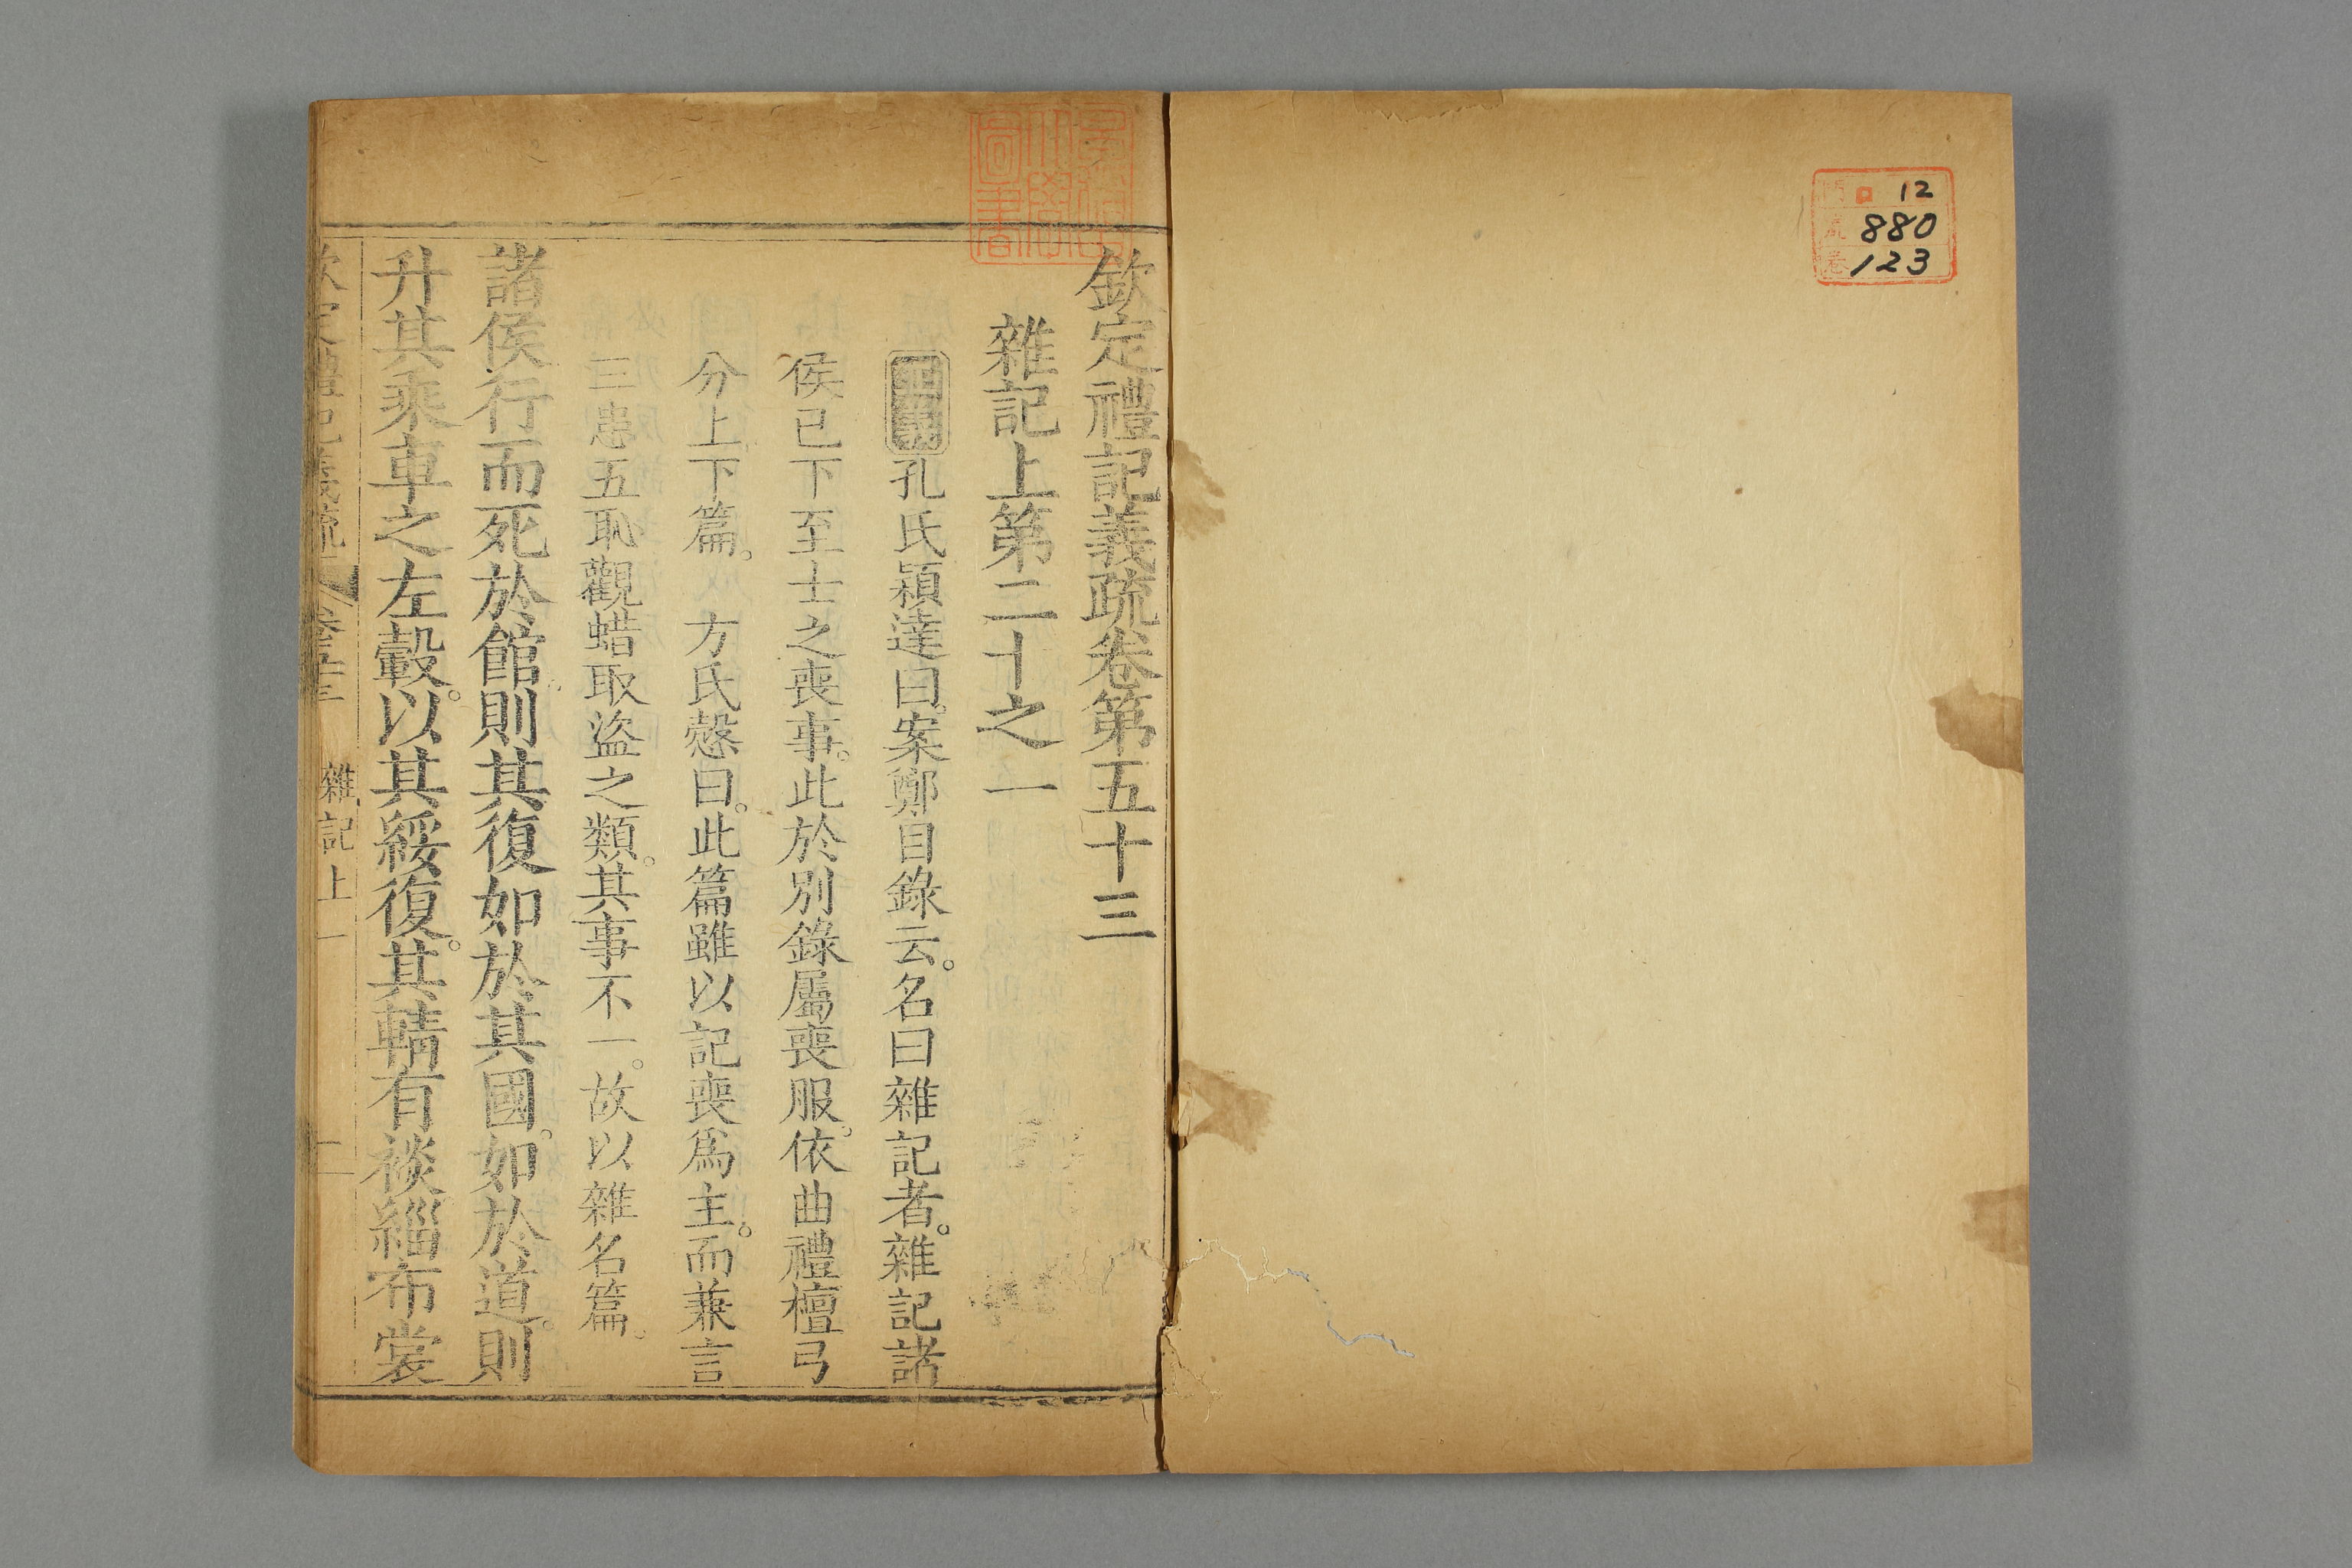 12
880
123
欽定禮記義疏卷第五十三
雜記上第二十之一
正義孔氏穎達曰。案鄭目錄云。名曰雜記者。雜記諸
侯已下至士之喪事。此於別錄屬喪服。依曲禮檀弓
分上下篇。 方氏慤曰。此篇雖以記喪爲主。而兼言
三患五恥觀蜡取盜之類。其事不一。故以雜名篇。
諸侯行而死於館則其復如於其國。如於道。則
升其乘車之左轂。以其綏復。其輤有裧緇布裳
欽定禮記義疏 卷五十三 雜記上一 二